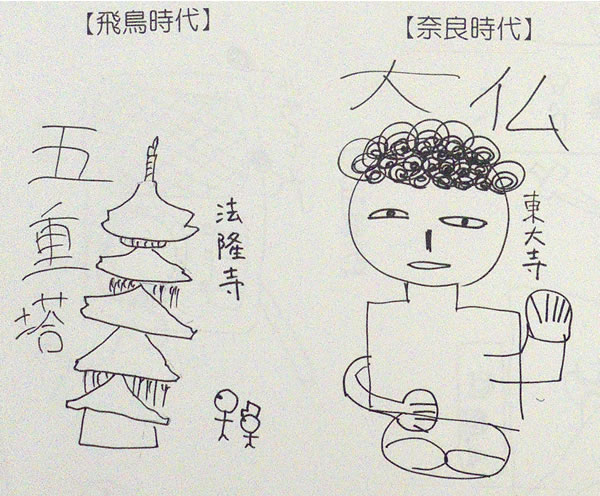 【飛鳥時代】
五重塔
法隆寺
【奈良時代】
大仏
東大寺